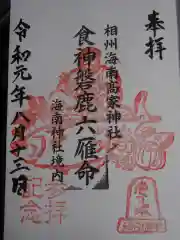 奉拝
相州海南高家神社
食神磐鹿六雁命
海南神社境内
令和元年八月十三日
参拝
記念